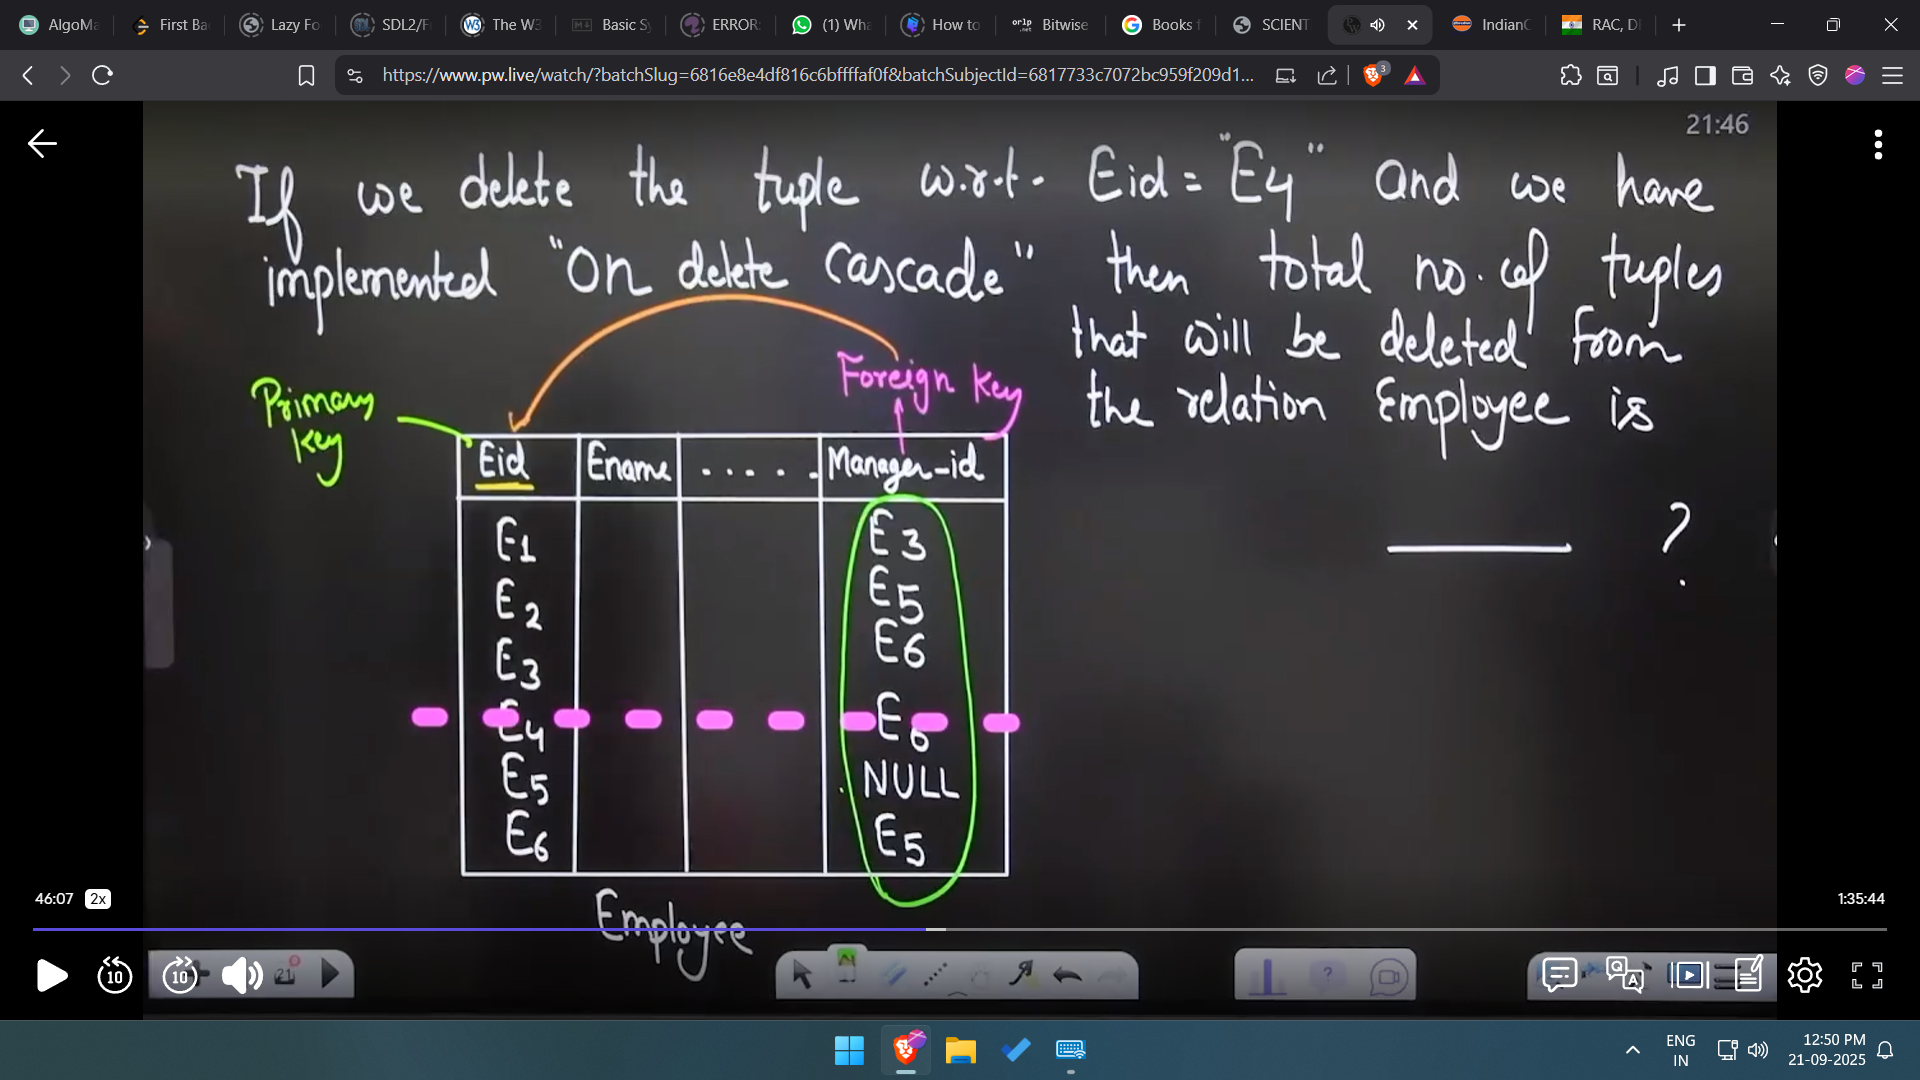 AlgoMa
First Ba
Lazy Fo
SDL2/F
The W3
Basic Sy
ERROR:
(1) Wha
How to
Bitwise
Books f
SCIENT
IndianC
RAC, D
https://www.pw.live/watch/?batchSlug=6816e8e4df816c6bffffaf0f&batchSubjectId=6817733c7072bc959f209d1...
3
21:46
If we delete the tuple w.r.t. Eid = "E4" and we have
implemented "On delete Cascade" then total no. of tuples
that will be deleted from
the relation Employee is
______ ?
Primary
key
Foreign key
Eid Ename ..... Manager-id
E1 E3
E2 E5
E3 E6
E4 E6
E5 NULL
E6 E5
Employee
46:07 2x
1:35:44
10
10
21
ENG
IN
12:50 PM
21-09-2025